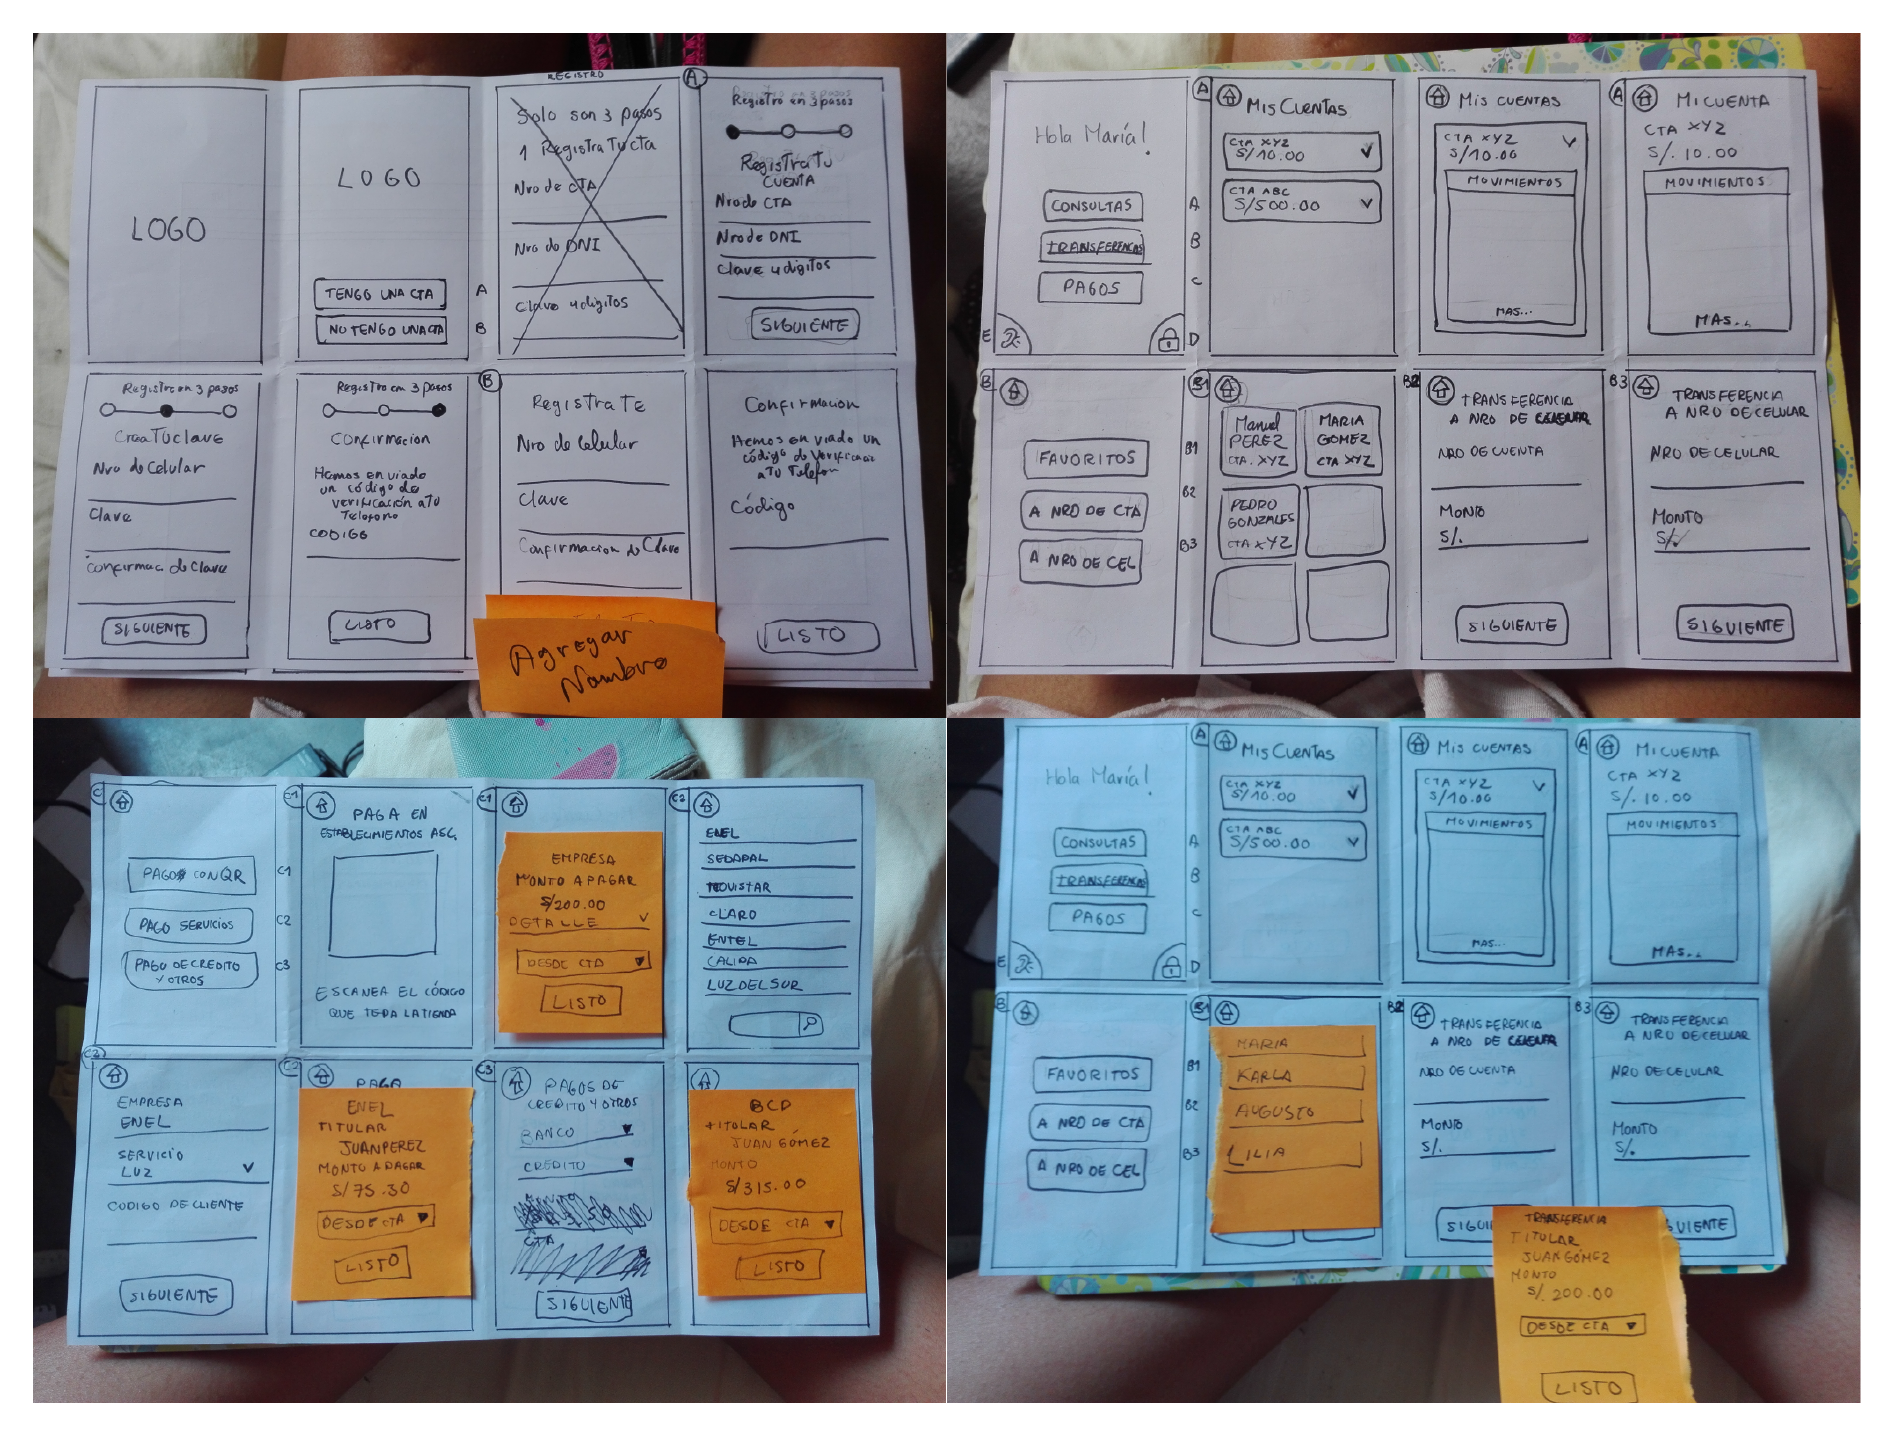 REGISTRO
LOGO
LOGO
TENGO UNA CTA
A
NO TENGO UNA CTA
B
Solo son 3 pasos
1 Registra Tu cta
Nro de CTA
Nro de DNI
Clave 4 digitos
A
Registro en 3 pasos
Registra Tu
CUENTA
Nro de CTA
Nro de DNI
Clave 4 digitos
SIGUIENTE
Registro en 3 pasos
Crea Tu clave
Nro de Celular
Clave
Confirmac. de Clave
SIGUIENTE
Registro en 3 pasos
Confirmacion
Hemos enviado
un código de
verificación a Tu
Telefono
CODIGO
LISTO
B
Registrate
Nro de Celular
Clave
Confirmacion de Clave
Agregar
Nombre
Confirmacion
Hemos enviado un
código de Verificac
a Tu Telefon
Código
LISTO
Hola María!
CONSULTAS
A
TRANSFERENCIAS
B
PAGOS
C
E
D
A
MIS CUENTAS
CTA XYZ
S/10.00
CTA ABC
S/500.00
MIS CUENTAS
CTA XYZ
S/10.00
MOVIMIENTOS
MAS...
A
MI CUENTA
CTA XYZ
S/. 10.00
MOVIMIENTOS
MAS..
B
FAVORITOS
B1
A NRO DE CTA
B2
A NRO DE CEL
B3
B1
Manuel
PEREZ
CTA. XYZ
MARIA
GOMEZ
CTA XYZ
PEDRO
GONZALES
CTA XYZ
B2
TRANSFERENCIA
A NRO DE CELULAR
NRO DE CUENTA
MONTO
S/.
SIGUIENTE
B3
TRANSFERENCIA
A NRO DE CELULAR
NRO DE CELULAR
MONTO
S/.
SIGUIENTE
C
PAGO CON QR
C1
PAGO SERVICIOS
C2
PAGO DE CREDITO
Y OTROS
C3
C1
PAGA EN
ESTABLECIMIENTOS ASC.
ESCANEA EL CÓDIGO
QUE TE DA LA TIENDA
C1
EMPRESA
MONTO A PAGAR
S/200.00
DETALLE
DESDE CTA
LISTO
C2
ENEL
SEDAPAL
MOVISTAR
CLARO
ENTEL
CALIDA
LUZ DEL SUR
C2
EMPRESA
ENEL
SERVICIO
LUZ
CODIGO DE CLIENTE
SIGUIENTE
C2
PAGA
ENEL
TITULAR
JUAN PEREZ
MONTO A PAGAR
S/75.30
DESDE CTA
LISTO
C3
PAGOS DE
CREDITO Y OTROS
BANCO
CREDITO
CTA
SIGUIENTE
BCP
TITULAR
JUAN GÓMEZ
MONTO
S/315.00
DESDE CTA
LISTO
Hola María!
CONSULTAS
A
TRANSFERENCIAS
B
PAGOS
C
E
D
A
MIS CUENTAS
CTA XYZ
S/10.00
CTA ABC
S/500.00
MIS CUENTAS
CTA XYZ
S/10.00
MOVIMIENTOS
MAS...
A
MI CUENTA
CTA XYZ
S/. 10.00
MOVIMIENTOS
MAS..
B
FAVORITOS
B1
A NRO DE CTA
B2
A NRO DE CEL
B3
B1
MARIA
KARLA
AUGUSTO
LILIA
B2
TRANSFERENCIA
A NRO DE CELULAR
NRO DE CUENTA
MONTO
S/.
SIGUI
B3
TRANSFERENCIA
A NRO DE CELULAR
NRO DE CELULAR
MONTO
S/.
GUIENTE
TRANSFERENCIA
TITULAR
JUAN GÓMEZ
MONTO
S/. 200.00
DESDE CTA
LISTO